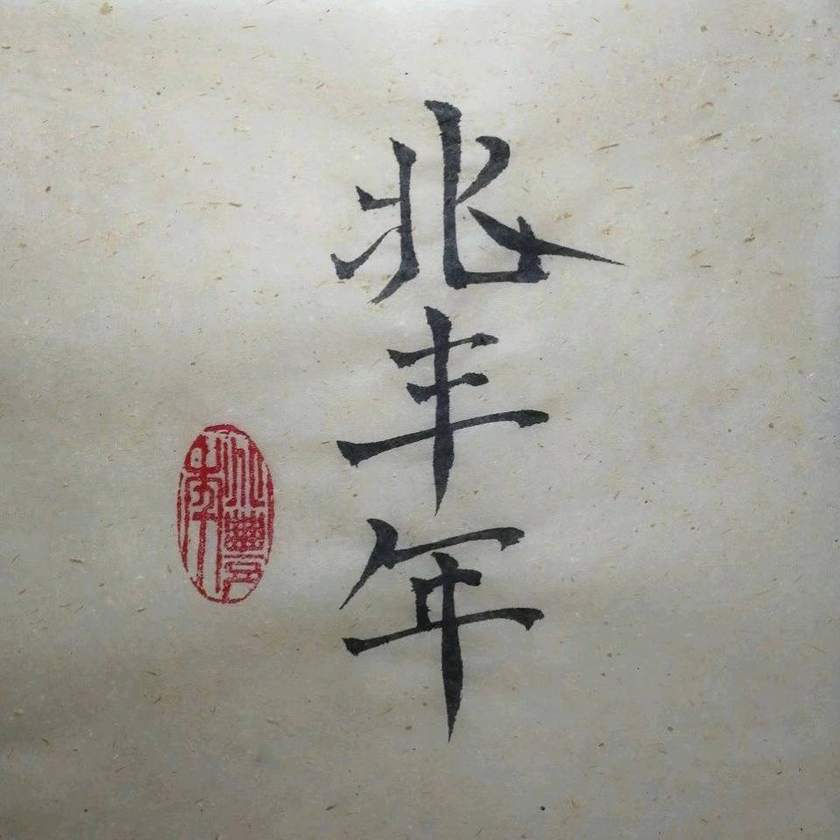 兆丰年